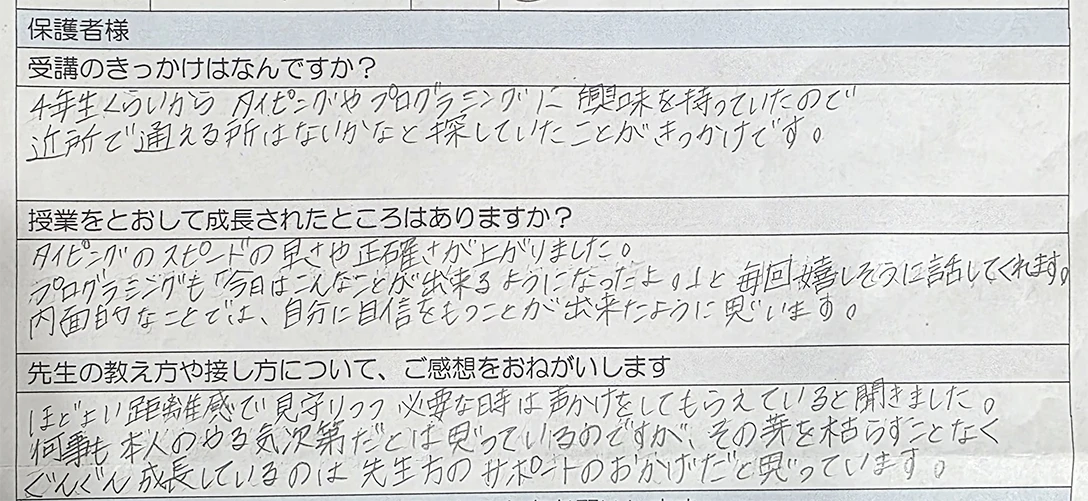 保護者様
受講のきっかけはなんですか？
4年生くらいから タイピングやプログラミングに 興味を持っていたので
近所で通える所はないかなと探していたことがきっかけです。
授業をとおして成長されたところはありますか？
タイピングのスピードの早さや正確さが上がりました。
プログラミングも「今日はこんなことが出来るようになったよ。」と毎回嬉しそうに話してくれます。
内面的なことでは、自分に自信をもつことが出来たように思います。
先生の教え方や接し方について、ご感想をおねがいします
ほどよい距離感で見守りつつ 必要な時は声かけをしてもらえていると聞きました。
何事も本人のやる気次第だとは思っているのですが、その芽を枯らすことなく
ぐんぐん成長しているのは先生方のサポートのおかげだと思っています。